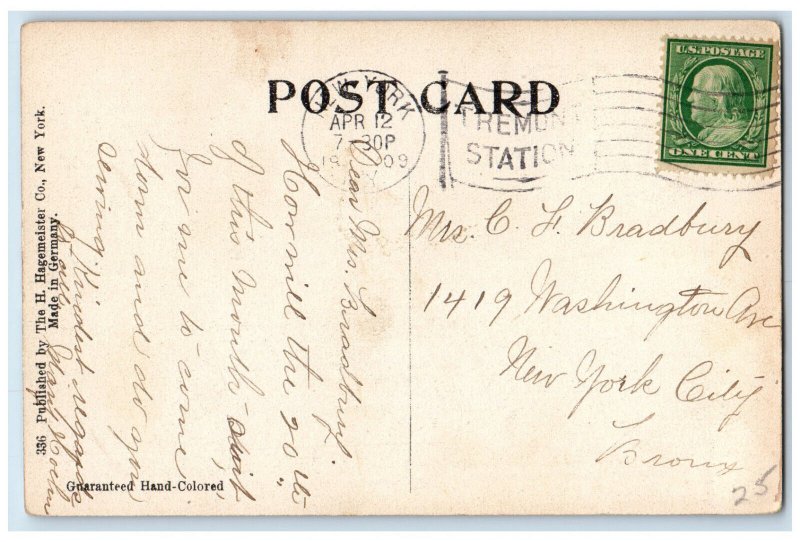 POST CARD
NEW YORK
APR 12
7-30P
1909
N.Y.
TREMONT
STATION
U.S. POSTAGE
ONE CENT
Mrs. C. F. Bradbury
1419 Washington Ave
New York City
Bronx
25
Dear Mrs. Bradbury,
How will the 20th
of this month suit
for me to come
down and do your
sewing.
Kindest regards
to all.
336 Published by The H. Hagemeister Co., New York.
Made in Germany.
Guaranteed Hand-Colored